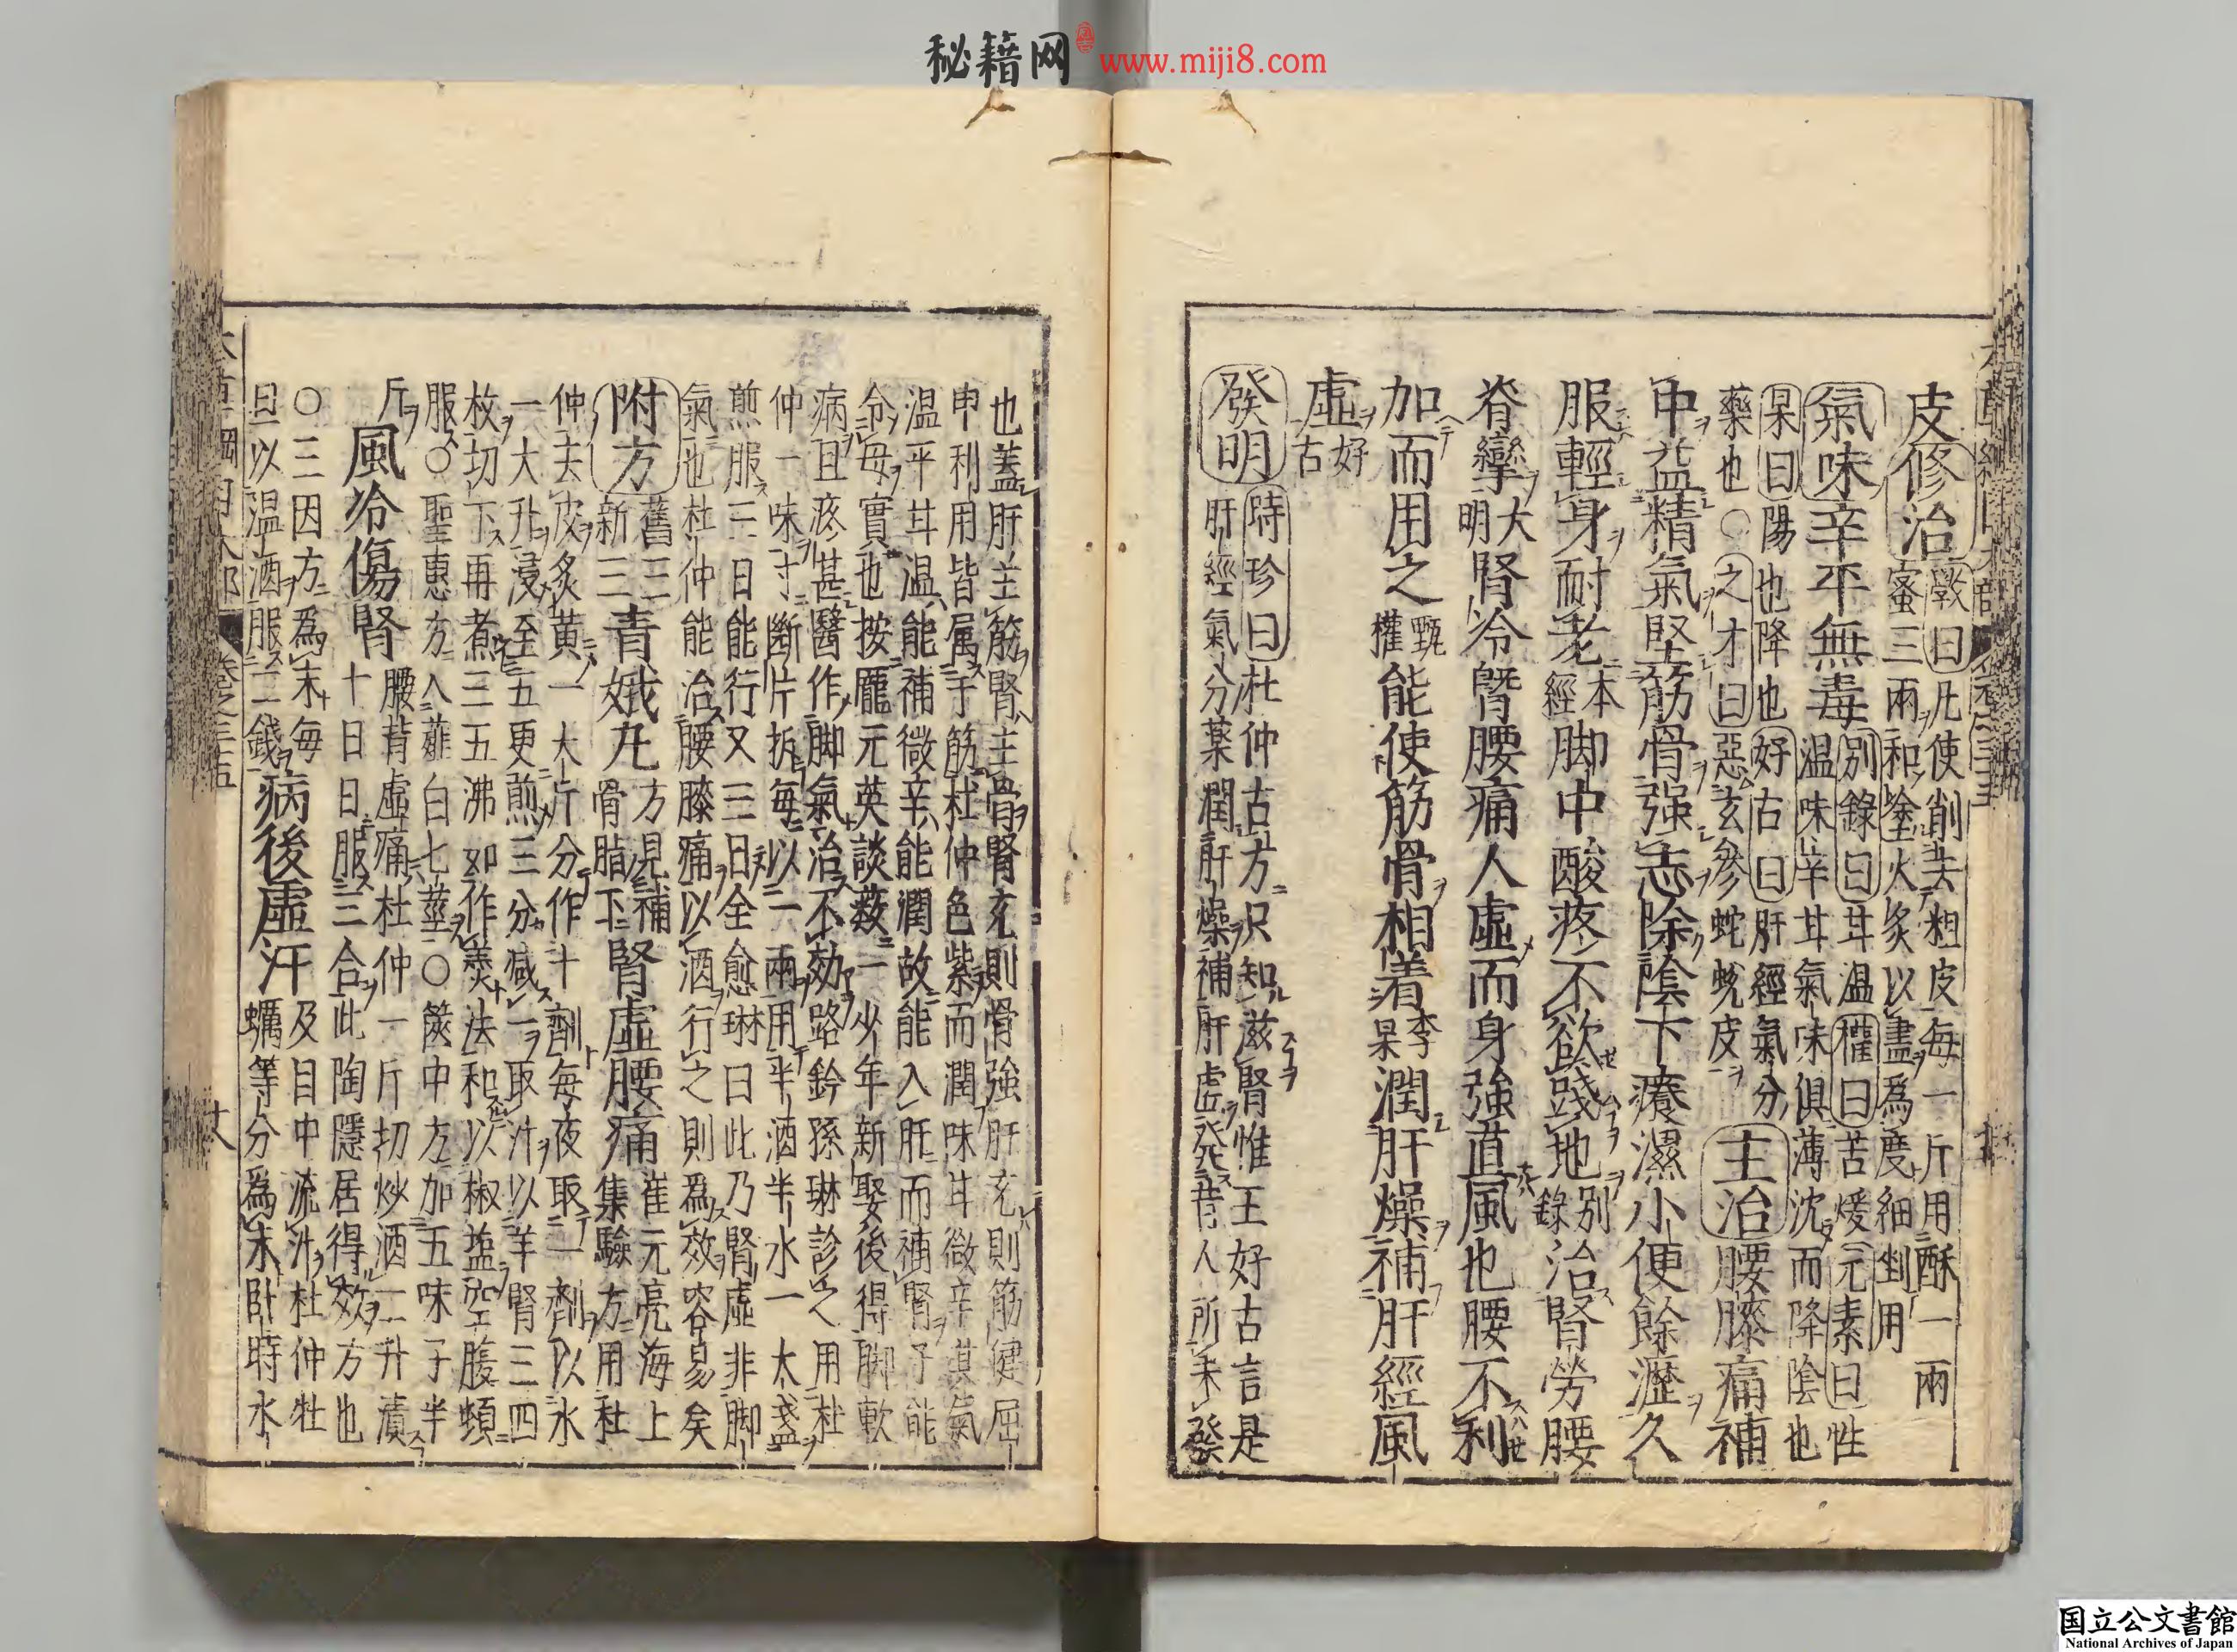 秘籍网 www.miji8.com
皮修治斅曰凡使削去粗皮每一斤用酥一兩
蜜三兩和塗火炙以盡爲度細剉用
氣味辛平無毒別錄曰甘温權曰苦煖元素曰性
温味辛甘氣味俱薄沈而降陰也
杲曰陽也降也好古曰肝經氣分
藥也○之才曰惡玄參蛇蛻皮主治腰膝痛補
中益精氣堅筋骨强志除陰下癢濕小便餘瀝久
服輕身耐老本經脚中酸疼不欲踐地別錄治腎勞腰
脊攣大明腎冷䐴腰痛人虛而身強直風也腰不利
加而用之甄權能使筋骨相着李杲潤肝燥補肝經風
虛好古
發明時珍曰杜仲古方只知滋腎惟王好古言是
肝經氣分藥潤肝燥補肝虛發昔人所未發
也蓋肝主筋腎主骨腎充則骨強肝充則筋健屈
申利用皆属于筋杜仲色紫而潤味甘微辛其氣
温平甘温能補微辛能潤故能入肝而補腎子能
令母實也按龐元英談薮一少年新娶後得脚軟
病且疼甚醫作脚氣治不効路鈐孫琳診之用杜
仲一味寸斷片拆每以一兩用半酒半水一大盞
煎服三日能行又三日全愈琳曰此乃腎虛非脚
氣也杜仲能治腰膝痛以酒行之則爲效容易矣
附方舊三新三青娥丸方見補骨脂下腎虛腰痛崔元亮海上
集驗方用杜
仲去皮炙黄一大斤分作十劑每夜取一劑以水
一大升浸至五更煎三分減一取汁以羊腎三四
枚切下再煮三五沸如作羹法和以椒塩空腹頓
服○聖惠方入薤白七莖○篋中方加五味子半
斤風冷傷腎腰背虛痛杜仲一斤切炒酒二升漬
十日日服三合此陶隱居得效方也
○三因方爲末每
旦以温酒服二錢病後虛汗及目中流汁杜仲牡
蠣等分爲末卧時水
国立公文書館
National Archives of Japan